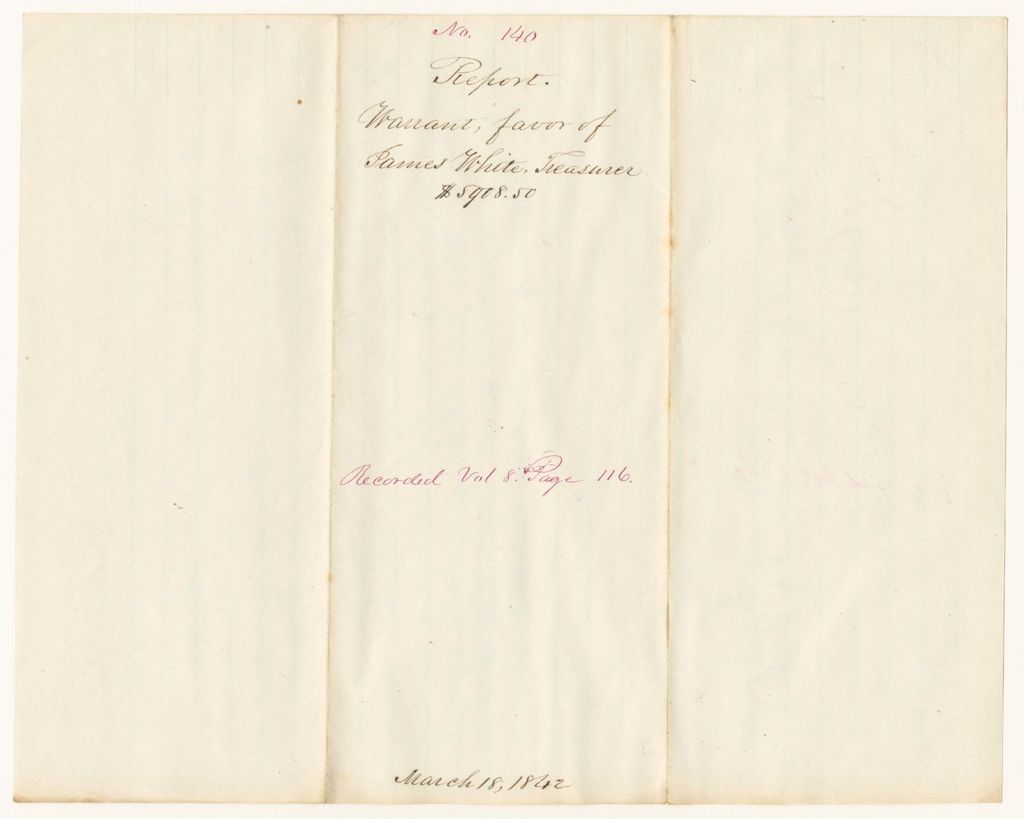 No. 140
Report.
Warrant, favor of
James White, Treasurer
$5908.50
Recorded Vol 8. Page 116.
March 18, 1842